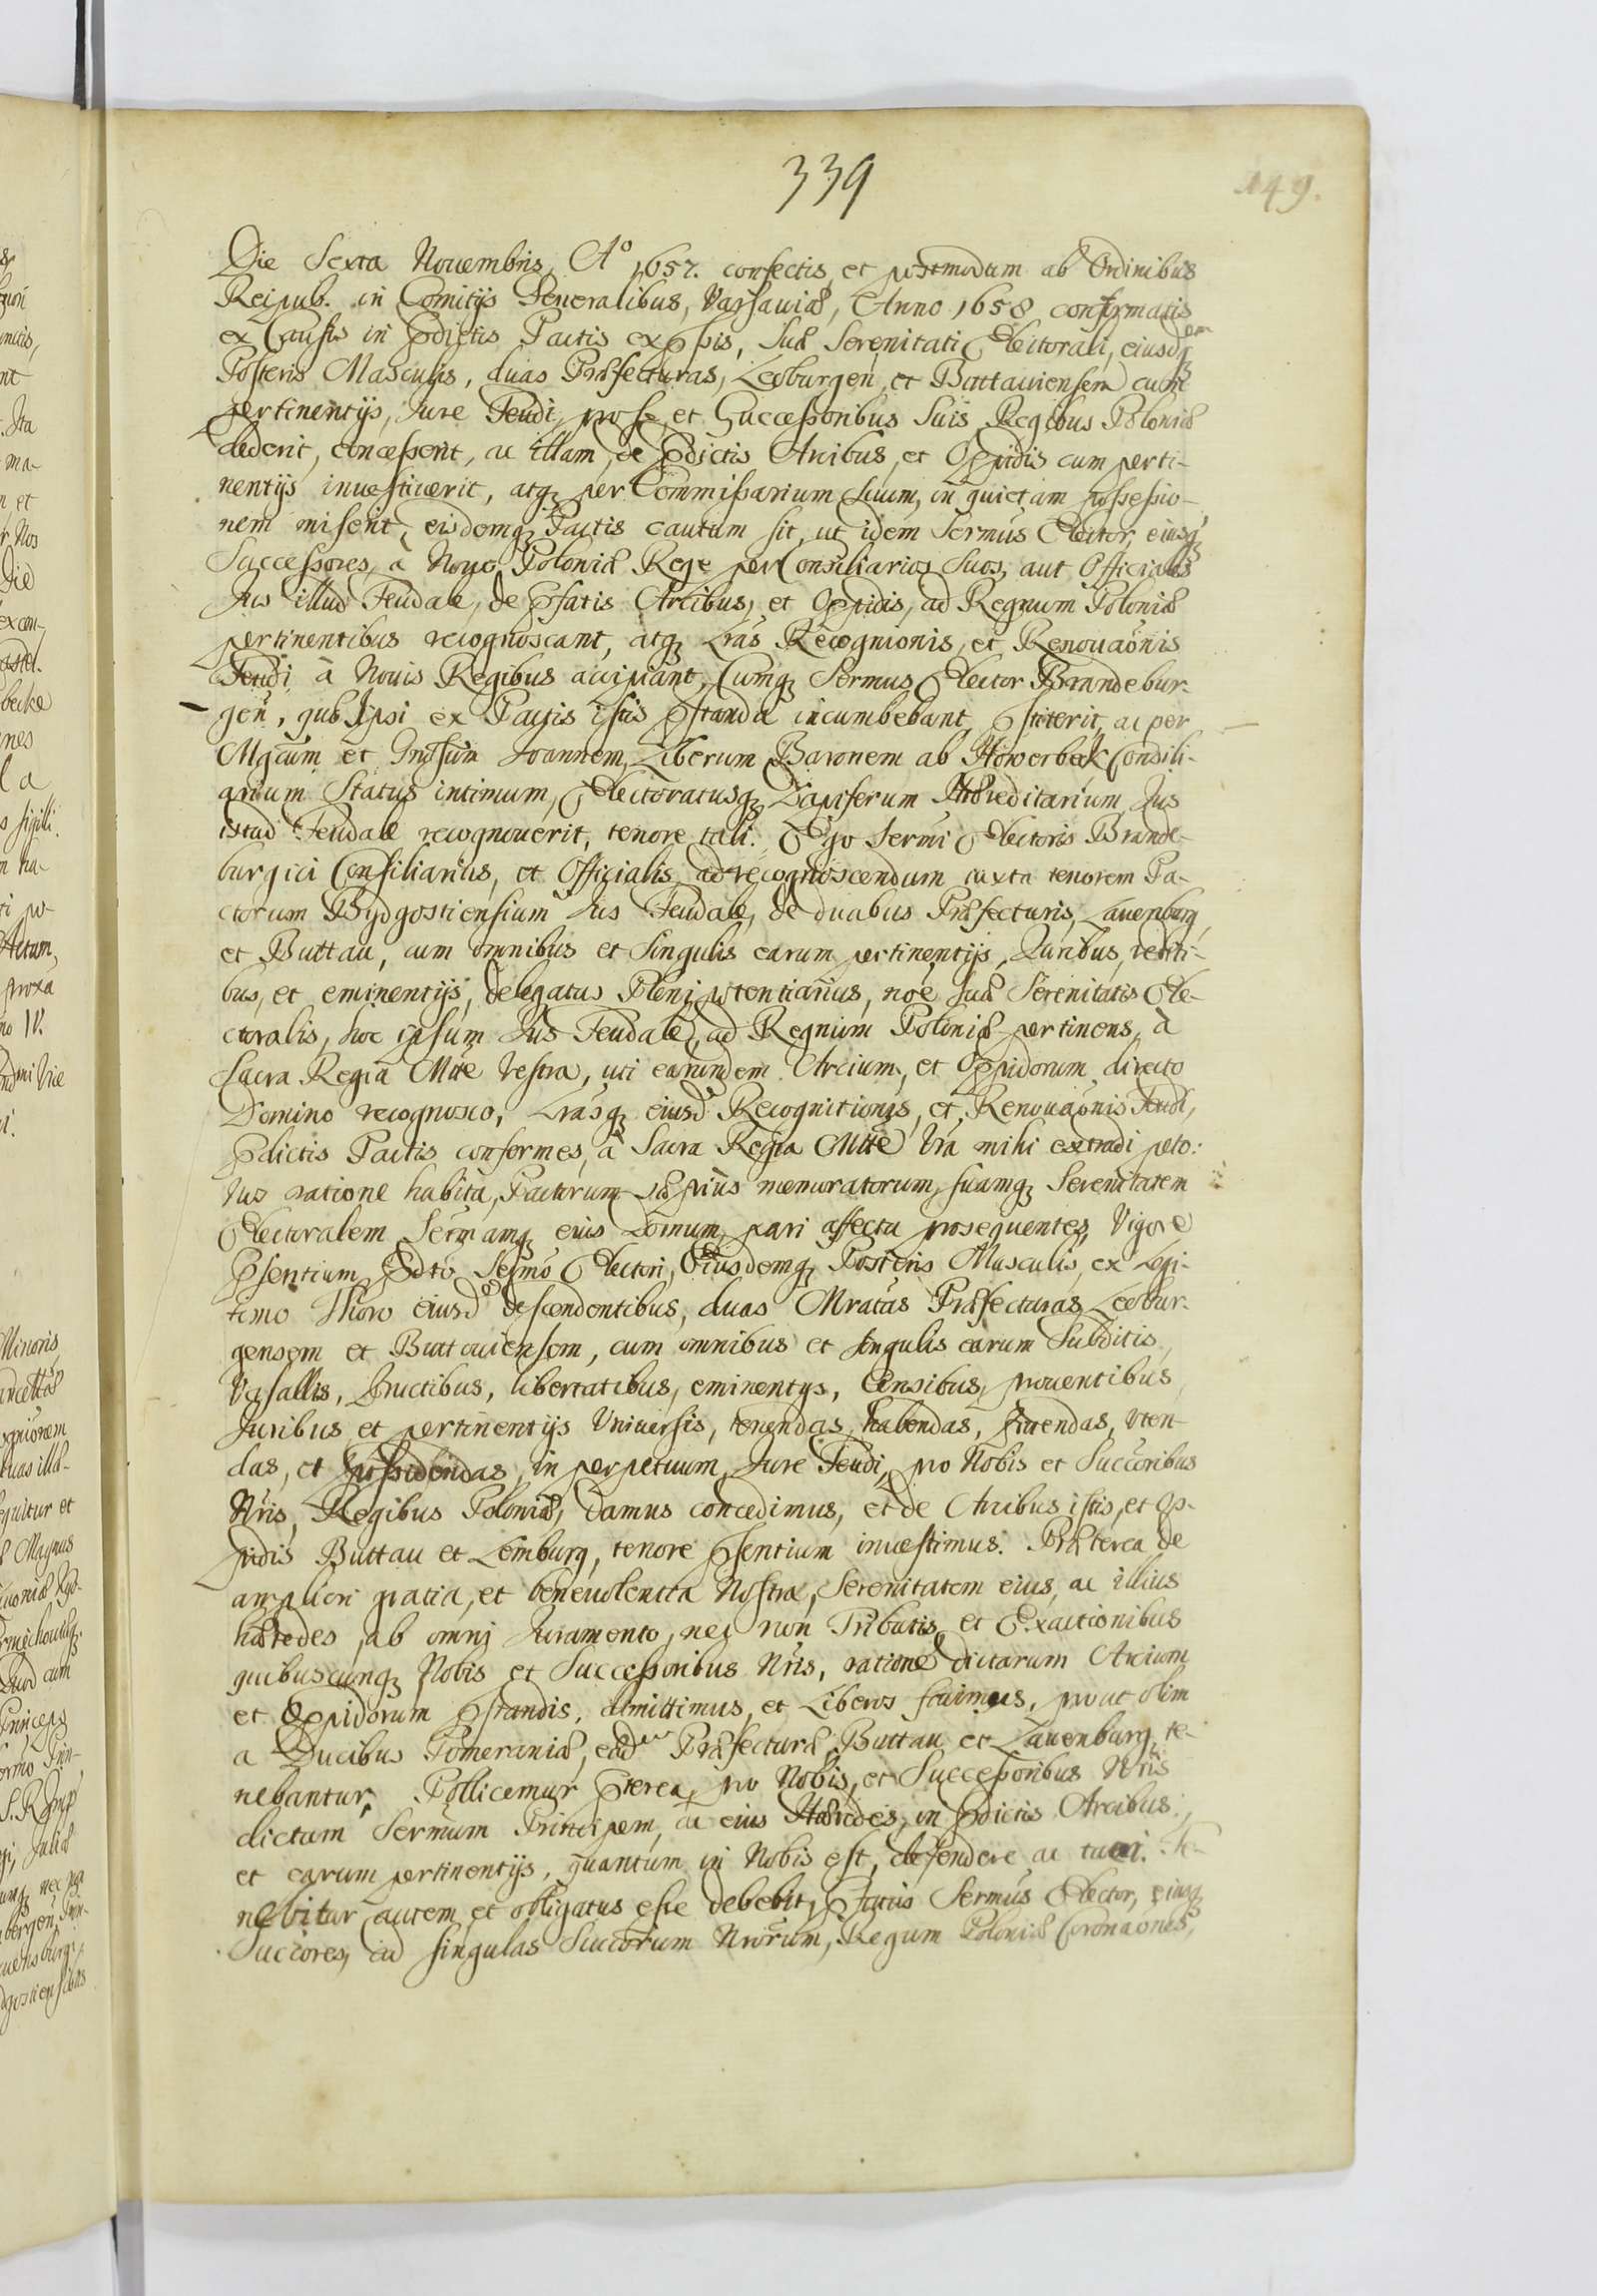 339
149.
Die Sexta Nouembris, Aº 1657. confectis, et postmodum ab Ordinibus
Reipub. in Comitijs Generalibus, Varsauiæ, Anno 1658 confirmatis
ex Causis in pdictis Pactis expssis, Suæ Serenitati Electorali, eiusdemq
Posteris Masculis, duas Præfecturas, Leoburgen, et Buttauiensem cum
pertinentijs, Jure Feudi, pro se, et Successoribus Suis, Regibus Poloniæ
dederit, concesserit, ac illam, de pdictis Arcibus, et Oppidis cum perti-
nentijs inuestiuerit, atq per Commissarium Suum, in quietam possessio-
nem miserit, eisdemq Pactis cautum sit, ut idem Sermus Elector, eiusq
Successores, à Nouo Poloniæ Rege per Consiliarios Suos, aut Officiales
Jus illud Feudale, de pfatis Arcibus, et Oppidis, ad Regnum Poloniæ
pertinentibus recognoscant, atq Lras Recognionis, et Renouaonis
Feudi à Nouis Regibus accipiant, Cumq Sermus Elector Brandebur-
gen, quæ Ipsi ex Pactis istis pstanda incumbebant, pstiterit, ac per
Mgcum et Gnosum Joannem, Liberum Baronem ab Howerbek Consili-
arium Status intimum, Electoratusq Dapiferum Hæreditarium, Jus
istud Feudale recognouerit, tenore tali. Ego Sermi Electoris Brande-
burgici Consiliarius, et Officialis, ad recognoscendum iuxta tenorem Pa-
ctorum Bydgostiensium Jus Feudale, de duabus Præfecturis, Lauenburg,
et Buttau, cum omnibus et singulis earum pertinentijs, Juribus, rediti-
bus, et eminentijs, delegatus Plenipotentiarius, noe Suæ Serenitatis Ele-
ctoralis, hoc ipsum Jus Feudale, ad Regnum Poloniæ pertinens, à
Sacra Regia Mtte Vestra, uti earundem Arcium, et Oppidorum directo
Domino recognosco, Lrasq eiusd Recognitionis, et Renouaonis Feudi,
pdictis Pactis conformes, à Sacra Regia Mtte Vra mihi extradi peto:
Nos ratione habita, Pactorum sæpius memoratorum, suamq Serenitatem
Electoralem Sermamq eius Domum, pari affectu prosequentes, Vigore
psentium pdto Sermo Electori, Eiusdemq Posteris Masculis, ex Legi-
timo Thoro eiusd descendentibus, duas Mratas Præfecturas Leobur-
gensem et Buttouiensem, cum omnibus et singulis earum Subditis,
Vasallis, Fructibus, libertatibus, eminentys, Censibus, prouentibus,
Juribus et pertinentijs Vniuersis, tenendas, habendas, fruendas, vten-
das, et possidendas, in perpetuum, Jure Feudi, pro Nobis et Succoribus
Nris, Regibus Poloniæ, damus concedimus, et de Arcibus istis, et Op-
pidis Buttau et Lemburg, tenore psentium inuestimus. Præterea de
ampliori gratia, et beneuolentia Nostra, Serenitatem eius, ac illius
hæredes, ab omni Juramento, nec non Tributis et Exactionibus
quibuscunq Nobis et Successoribus Nris, ratione dictarum Arcium
et Oppidorum pstandis, dimittimus, et Liberos facimus, prout olim
a Ducibus Pomeraniæ, eæd Præfecturæ Buttau et Lauenburg, te-
nebantur, Pollicemur pterea, pro Nobis, et Successoribus Nris
dictum Sermum Principem, ac eius Hæredes, in pdictis Arcibus,
et earum pertinentijs, quantum in Nobis est, defendere ac tueri. Te-
nebitur autem et obligatus esse debebit, pfatus Sermus Elector, eiusq
Succores, ad singulas Succorum Nrorum, Regum Poloniæ Coronaones,